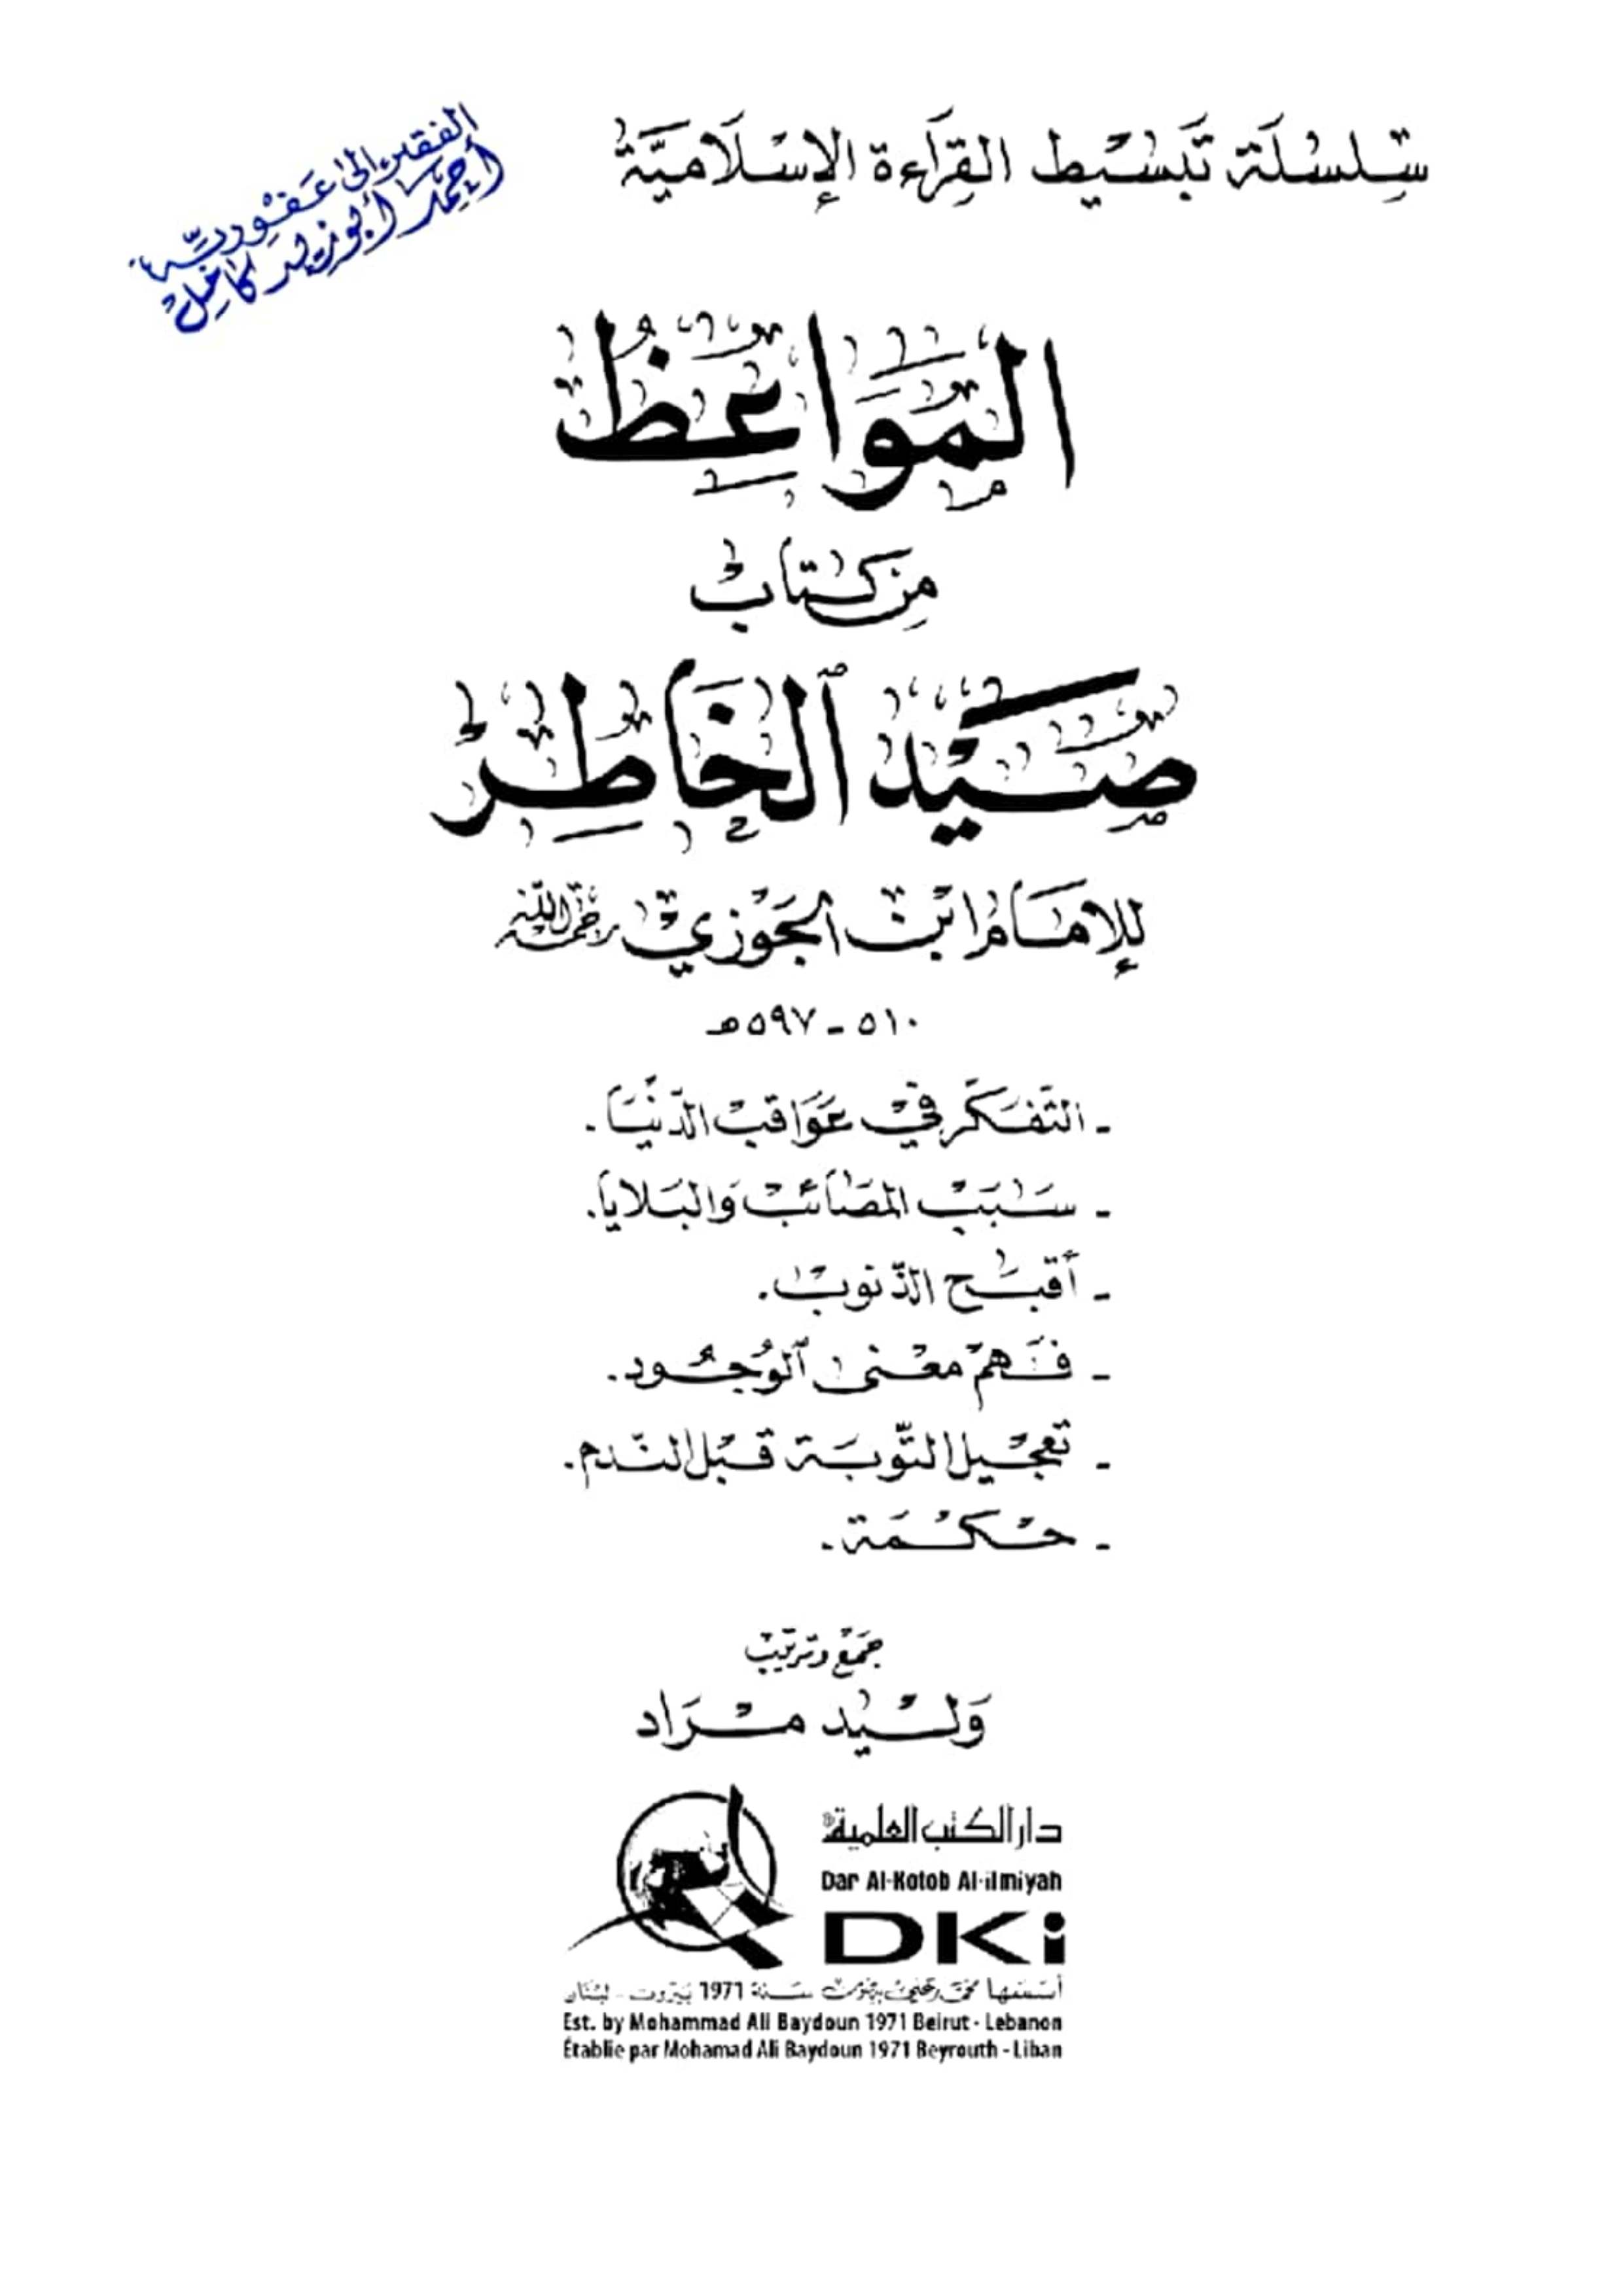 سِلسُلَة تَبسْيط القِرَاءة الإسْلَاميَّة
الفقير إلى عَفْوِ ربِّهِ
أحِمَد أبوزيد كامِل
المَوَاعِظ
مِن كتَاب
صَيْد ٱلخَاطِرْ
للإمَام ابْن الجَوْزيّ رحمه الله
٥١٠ - ٥٩٧هـ
- التَّفَكّر فيْ عَوَاقبْ الدّنيَا.
- سَبَبْ المصَائبْ وَالبَلايَا.
- أقبَح الذّنوبْ.
- فَهمْ معْنى ٱلوُجُود.
- تعجْيل التَّوبَة قبْل النّدم.
- حكْمَة.
جَمَعْ وَترتيْب
وَلسْيد مرَاد
دار الكتب العلمية
Dar Al-Kotob Al-ilmiyah
DKi
أسَّسَهَا محمّد عَلي بيضون سَنة 1971 بَيْروت - لبْنَان
Est. by Mohammad Ali Baydoun 1971 Beirut - Lebanon
Établie par Mohamad Ali Baydoun 1971 Beyrouth - Liban